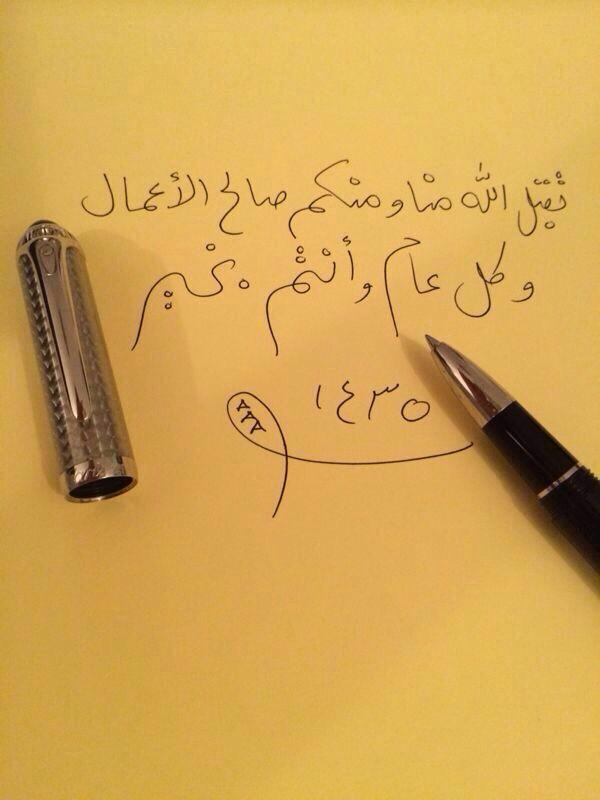 تقبل الله منا ومنكم صالح الأعمال
وكل عام وأنتم بخير
١٤٣٥
AAA